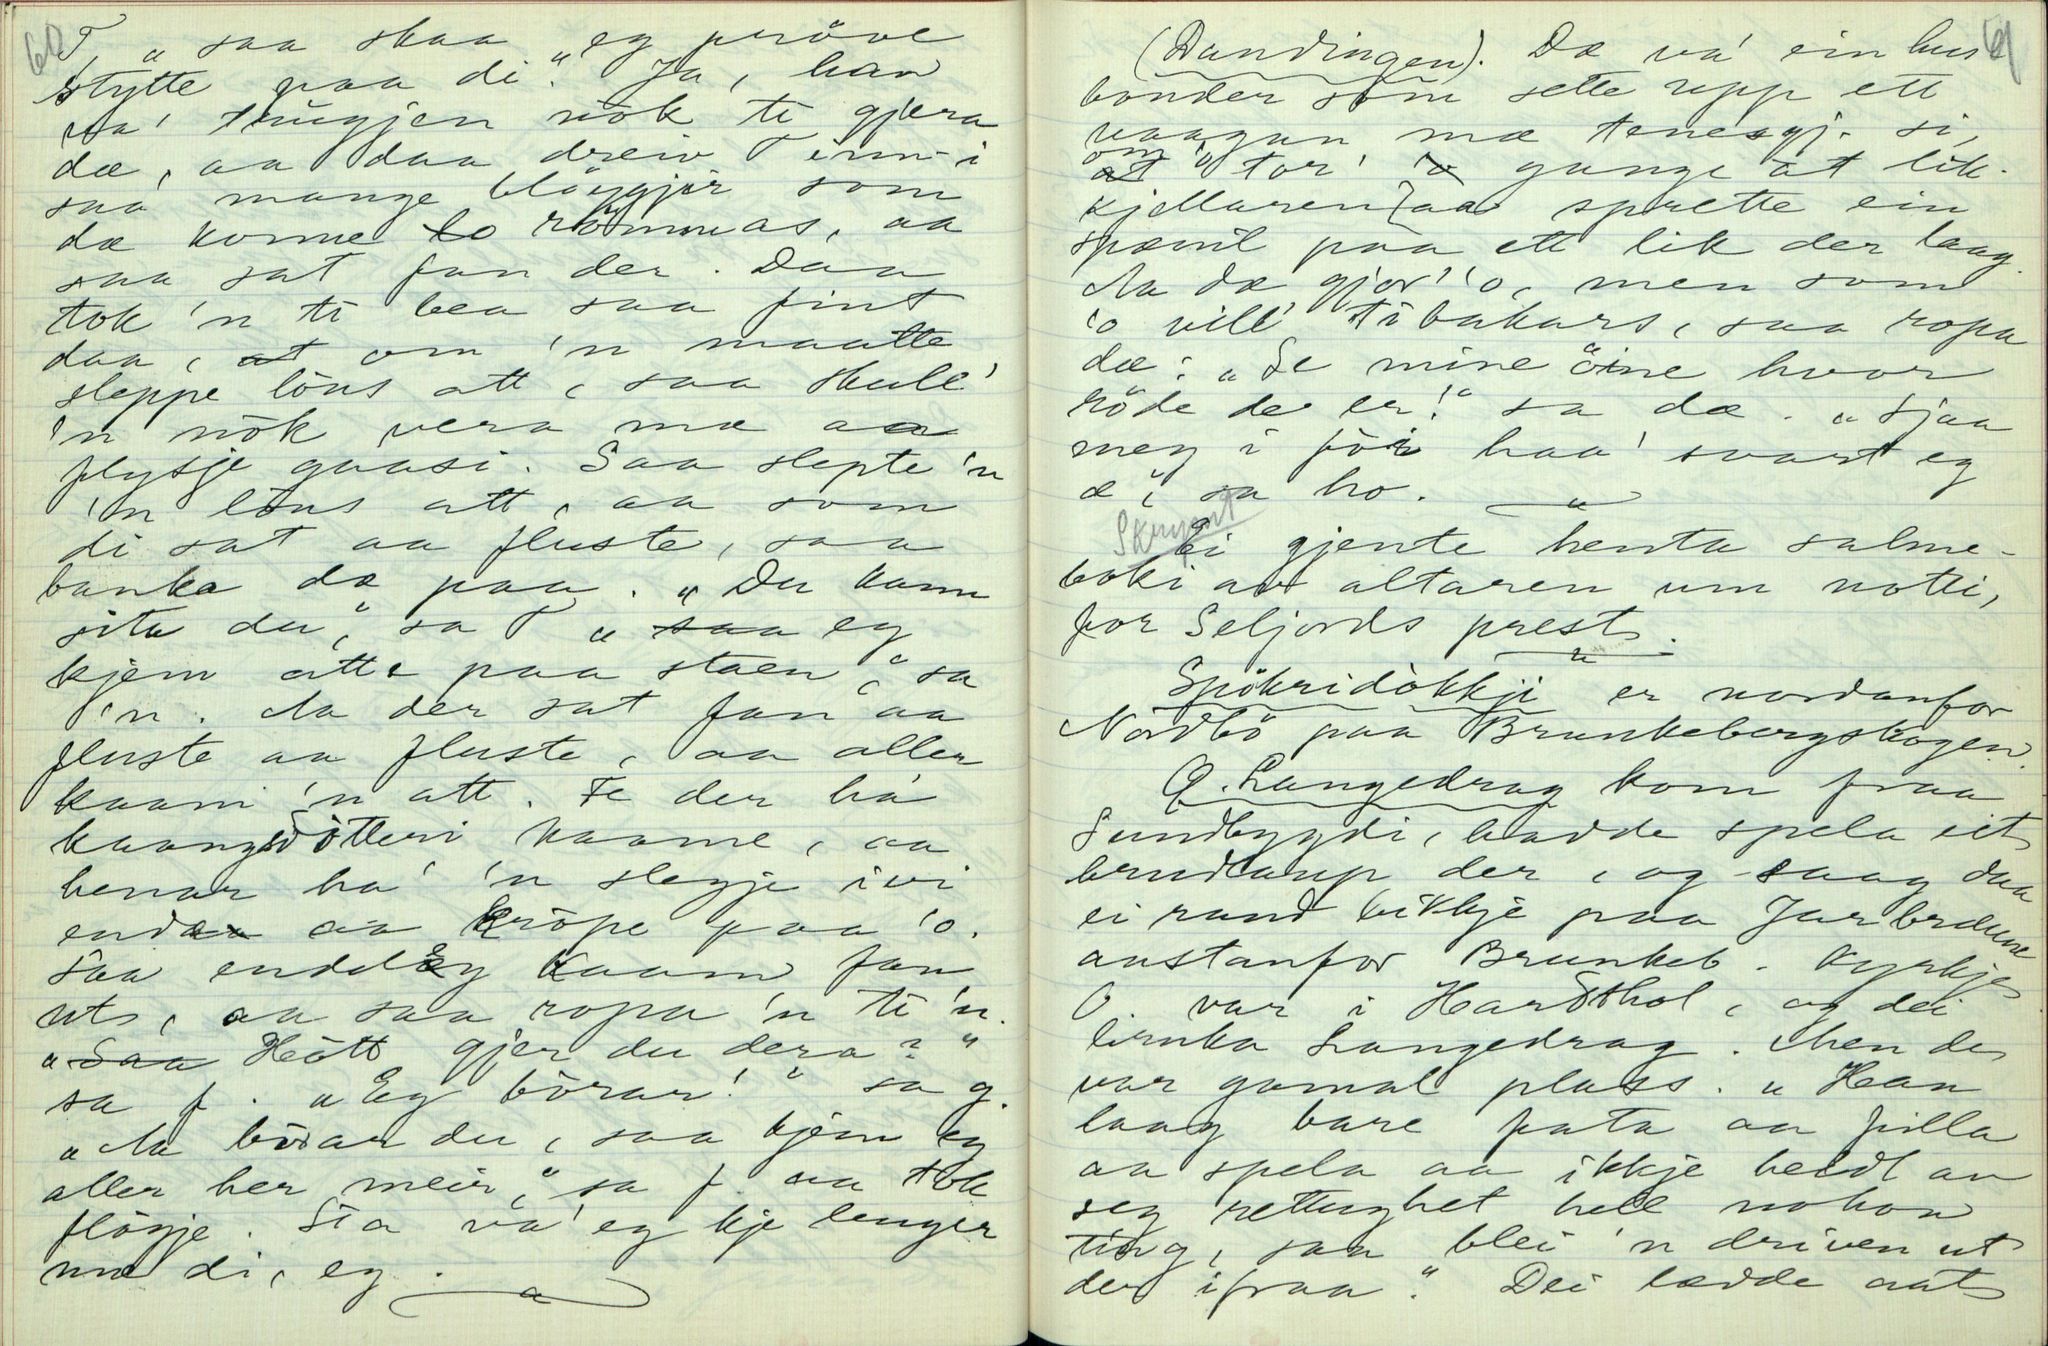 60
T, „saa skaa eg pröve
stytte paa di". Ja, han
va' trûgjen nôk te gjera
dæ, aa daa dreiv T inn i
saa mange blöyggjir som
dæ konne lo römmas, aa
saa sat fan der. Daa
tok 'n ti bea saa fint
daa, at om 'n maatte
sleppe löns att, saa skull'
'n nôk vera mæ aa
flysje gaasi. Saa slepte 'n
'n löns att, aa som
di sat aa fluste, saa
banka dæ paa. „Du kann
sita du", sa T „saa eg
kjem atte paa staen", sa
'n. Aa der sat fan aa
fluste aa fluste, aa aller
kaam 'n att. Te der ha
kaangsdötteri kaame, aa
henar ha' 'n slegje ivi
endan aa krôpe paa 'o.
Saa enddeg kaam fan
ut, aa saa ropa 'n te 'n.
„Saa Hôtt gjer du dera?"
sa f. „Eg bôrar!" sa g.
„Aa bôrar du, saa kjem eg
aller her meir", sa f. aa tok
flögje. Sia va' eg kje lenger
mæ di, eg.
61
(Dandingen). Dæ va' ein hus
bonder som sette upp ett
vaagan mæ tenesgj. si,
at om 'o tor' 'o gange at lik-
kjellaren, aa sprette ein
spænil paa ett lik der laag.
Aa dæ gjor' 'o, men som
'o vill' tibakars, saa ropa
dæ: „Se mine öine hvor
röde de er!" sa dæ. „Sjaa
meg i föi haa' svart eg
æ", sa ho.
Skrymt
Ei gjente henta salme-
boki av altaren um notti,
for Seljords prest.
Spökridôkkji er nordanfor
Nordbö paa Brunkebergskogen.
O. Langedrag kom fraa
Sundbygdi, hadde spela eit
brudlaup der, og saag daa
ei rand bikkje paa Jarbrdune
austanfor Brunkeb. kyrkje
O. var i Hardthol, og dei
lirnka Langedrag. Men de
var gamal plass. „Han
laag bare fata aa filla
aa spela aa ikkje heldt av
seg rettughet hell nokon
ting, saa blei 'n driven ut
der ifraa". Dei lædde aat